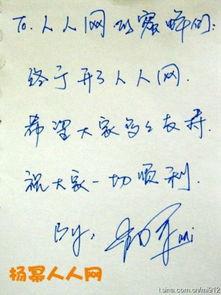 To. 人人网的蜜蜂们:
终于开了人人网.
希望大家多多支持.
祝大家一切顺利.
By.
杨幂人人网
t.sina.com.cn/mi912